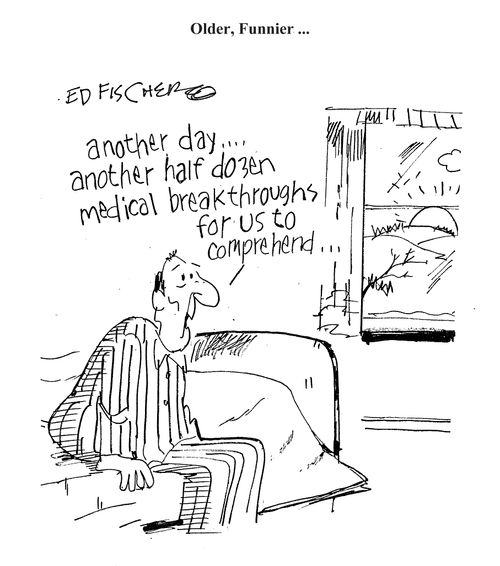 Older, Funnier ...
ED FISCHER
another day....
another half dozen
medical breakthroughs
for us to
comprehend...